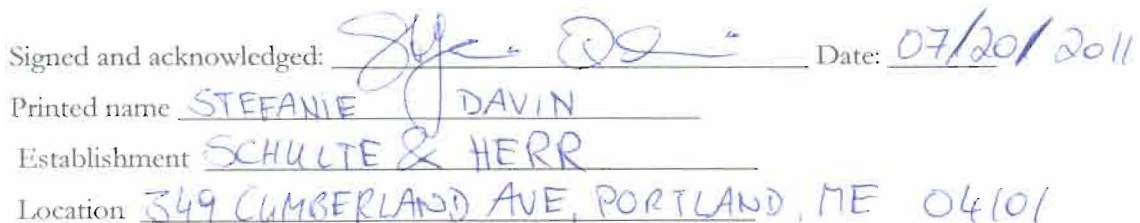 Signed and acknowledged: Date: 07/20/2011
Printed name STEFANIE DAVIN
Establishment SCHULTE & HERR
Location 349 CUMBERLAND AVE, PORTLAND, ME 04101